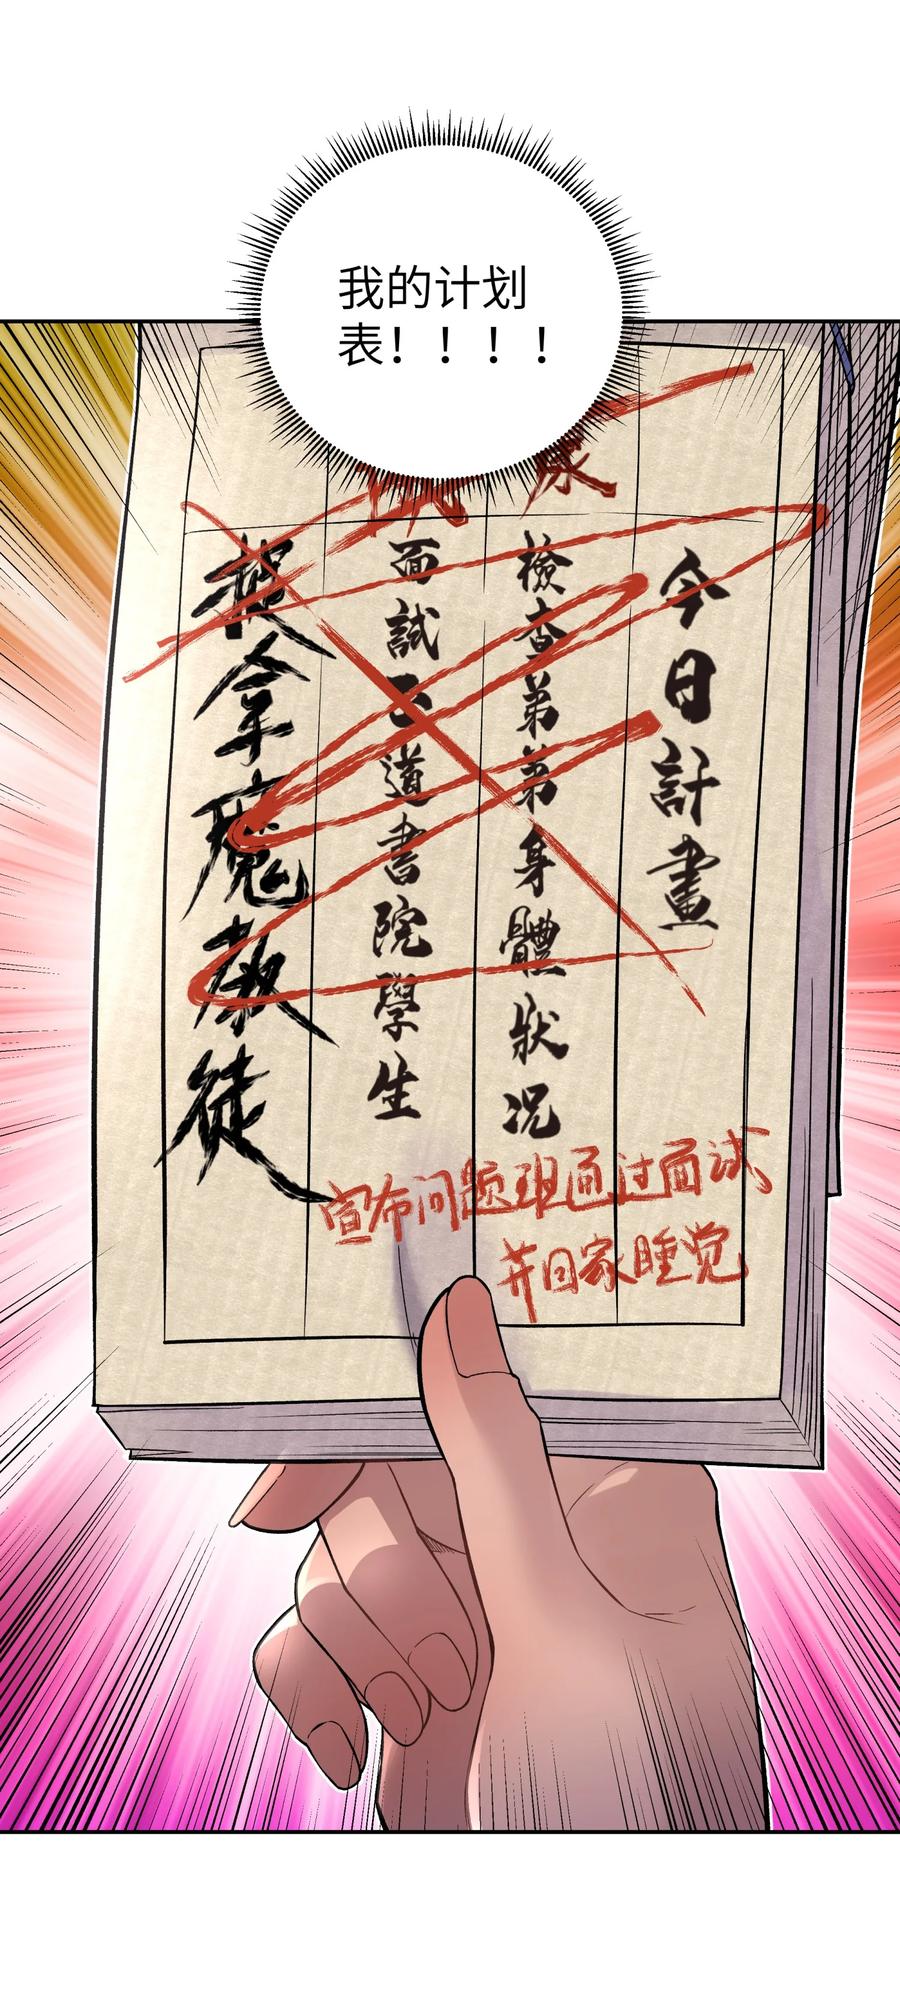 我的计划
表！！！！
今日計畫
檢查弟弟身體狀况
面試正道書院學生
捉拿魔教教徒
宣布问题班通过面试
并回家睡觉